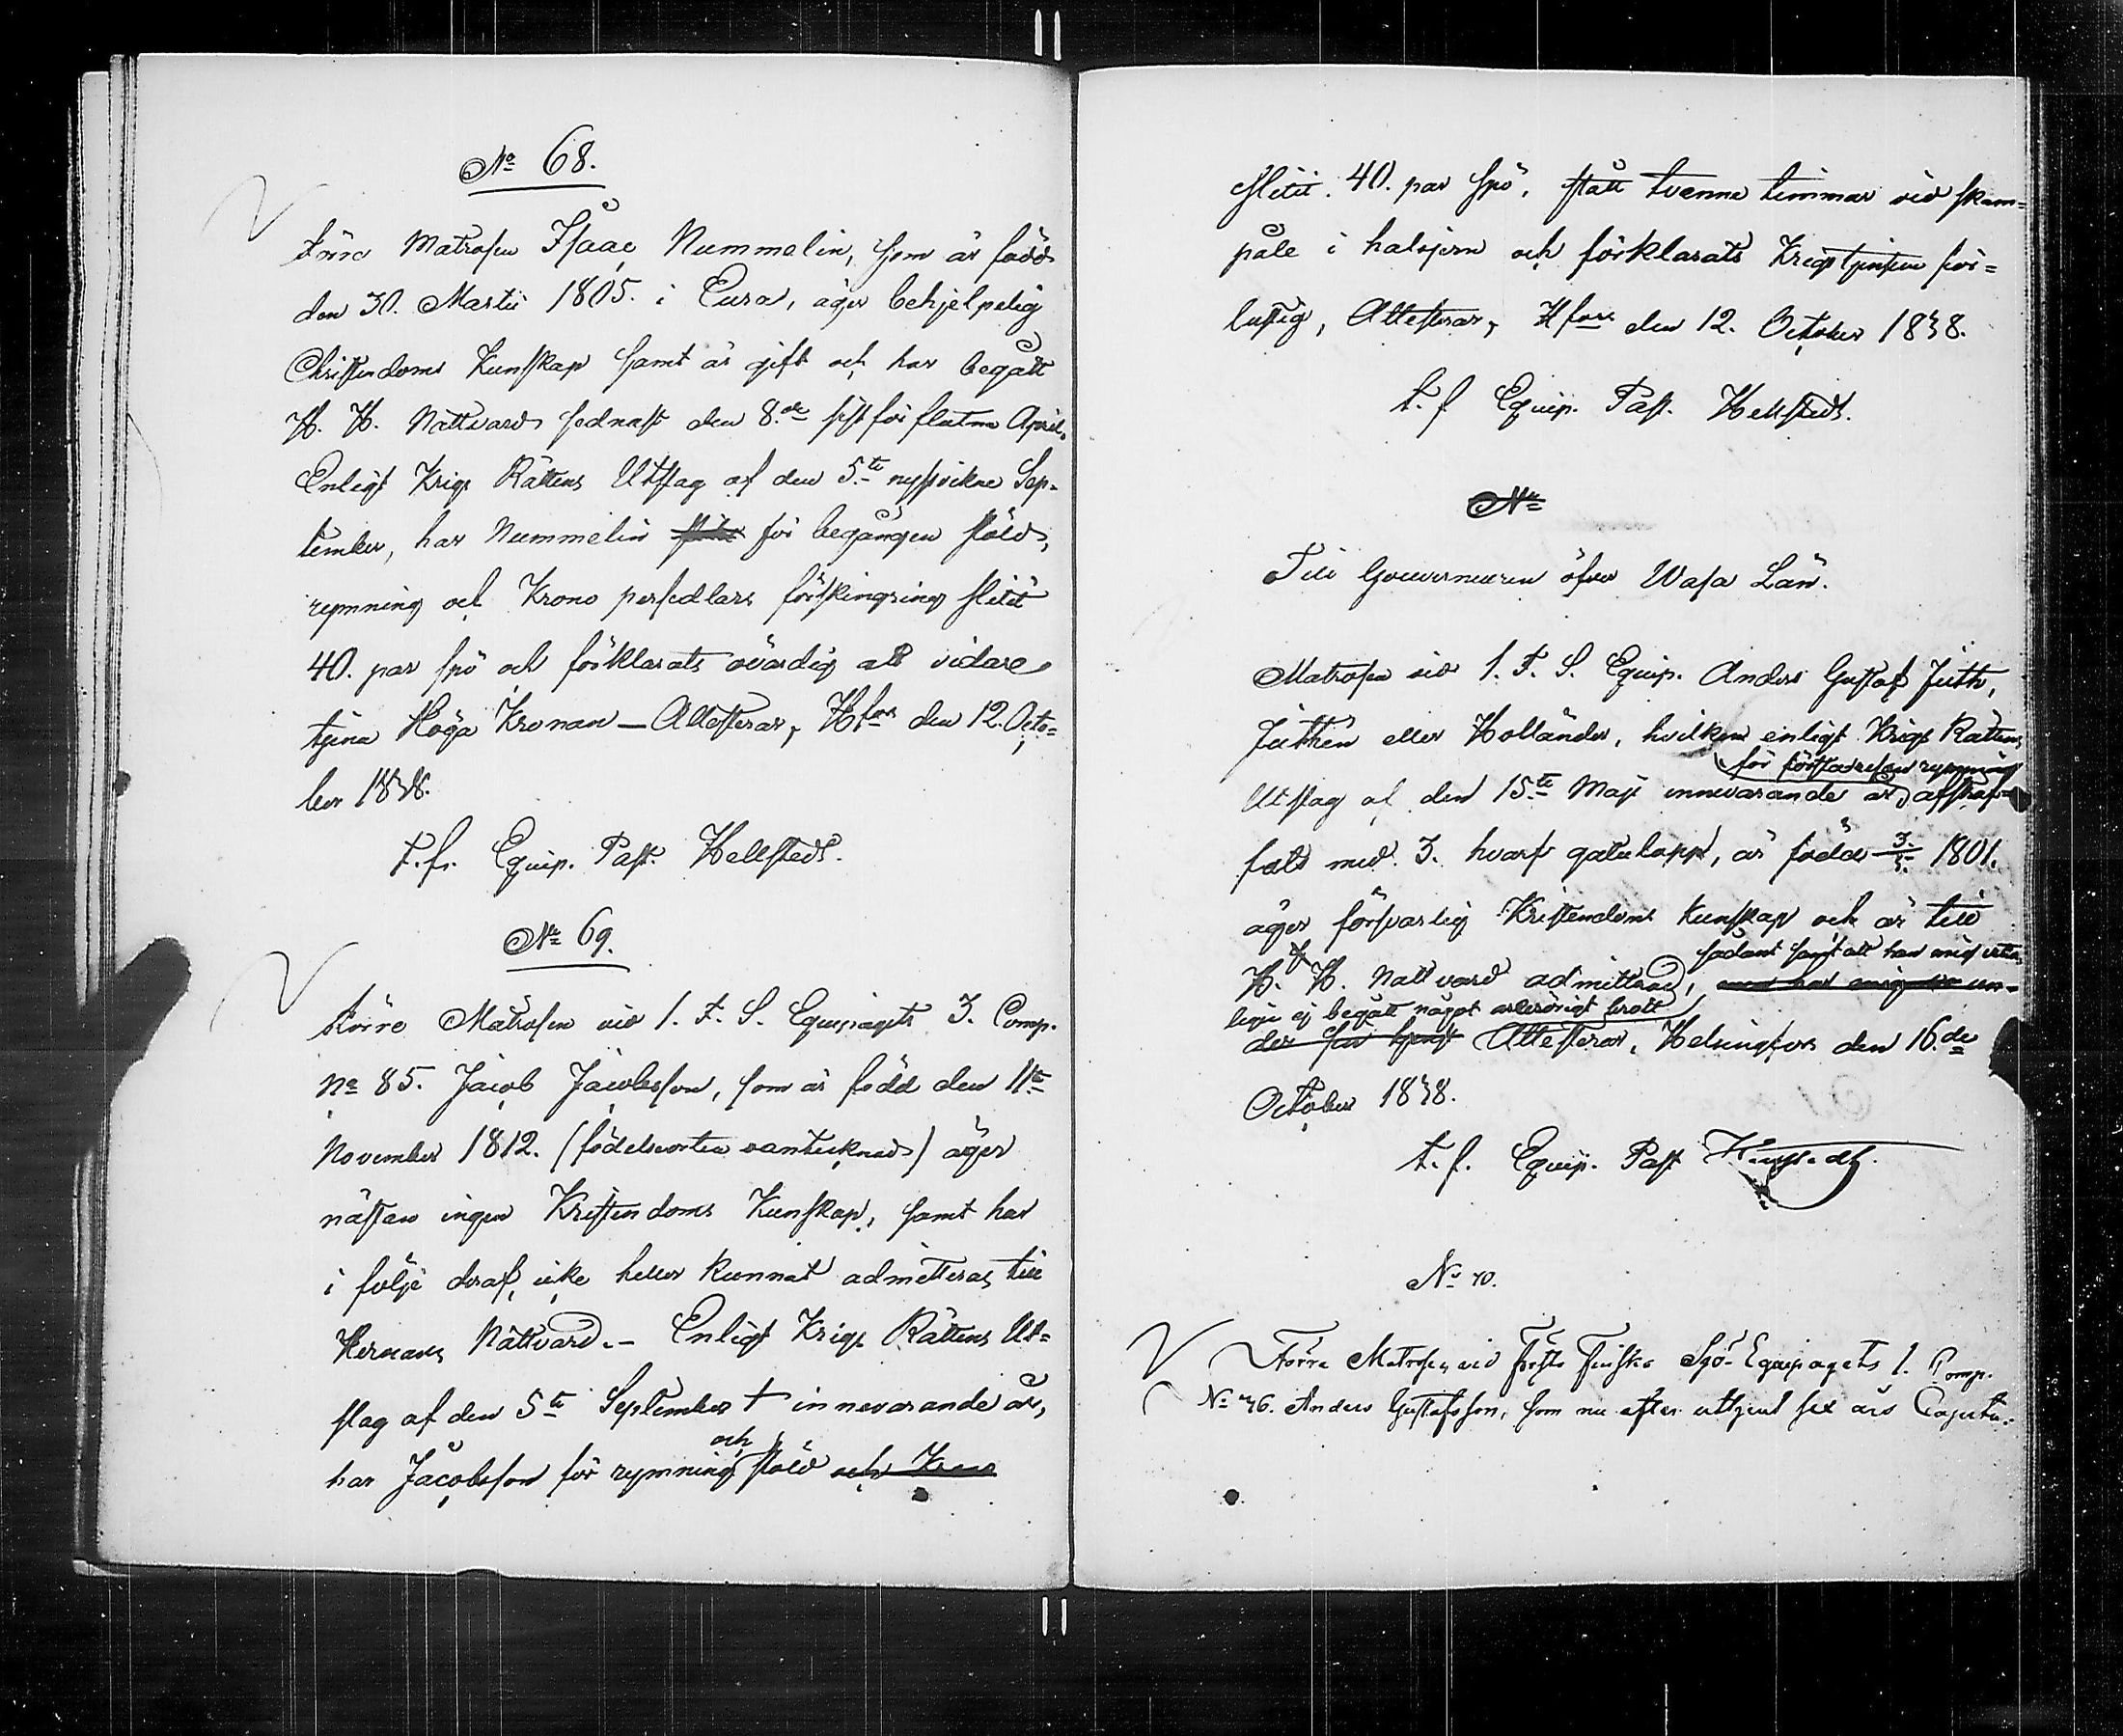 No 68.
Förre Matrosen Isaac Nummelin, som är född
den 30. Martii 1805. i Eura, äger behjelpelig
Christendoms Kunskap samt är gift och har begått
H. H. Nattvard sednast den 8.de sistförflutne April.
Enligt Krigs Rättens Utslag af den 5.te nyssvikne Sep-
tember, har Nummelin för begången stöld,
rymning och Krono persedlars förskingring slitit
40. par spö och förklarats ovärdig att vidare
tjena Höga Kronan — Attesterar, Hfors den 12. Octo-
ber 1838.
t. f. Equip. Past. Hellstedt.
No 69.
Förre Matrosen vid 1. F. S. Equipagets 3. Comp.
No 85. Jacob Jacobsson, som är född den 11te
November 1812. (födelseorten oantecknad) äger
nästan ingen Kristendoms Kunskap, samt har
i följe deraf icke heller kunnat admitteras till
Herrans Nattvard. — Enligt Krigs Rättens Ut-
slag af den 5te September innevarande år,
har Jacobsson för rymning och stöld och Krono
slitit 40. par spö, stått tvenne timmar vid skam-
påle i halsjern och förklarats Krigstjensten för-
lustig, Attesterar, Hfors den 12. October 1838.
t. f. Equip. Past. Hellstedt.
No
Till Gouverneuren öfver Wasa Län.
Matrosen vid 1. F. S. Equip. Anders Gustaf Juth,
Juthén eller Holländer, hvilken enligt Krigs Rättens
för första resan rymning
Utslag af den 15.te Maji innevarande år, afstraf-
fats med 3. hvarf gatulopp, är född 3/3 1801.
äger försvarlig Kristendoms Kunskap och är till
sådant samt att han mig veter-
H. H. Nattvard admitterad, un-
ligen ej begått något vanärigt brott
Attesterar, Helsingfors den 16.de
October 1838.
t. f. Equip. Past Hellstedt.
No 70.
Förre Matrosen vid Första Finska Sjö-Equipagets 1. Comp.
No 76. Anders Gustafsson, som nu efter uttjent sex års Capitu-